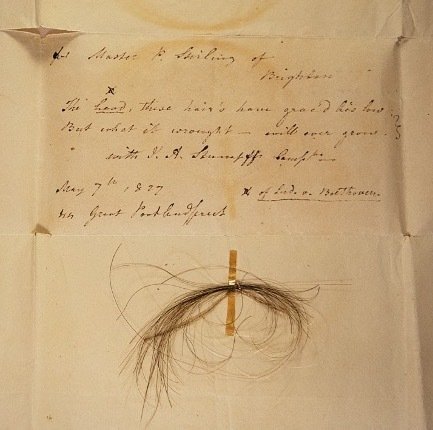 for Master P. Stirling of
Brighton
x
The head, these hair's have grac'd lies low
But what it wrought – will ever grow.
with J. A. Stumpff's Compts –
May 7th 1827
x of Lud. v. Beethoven.
Great Portland Street